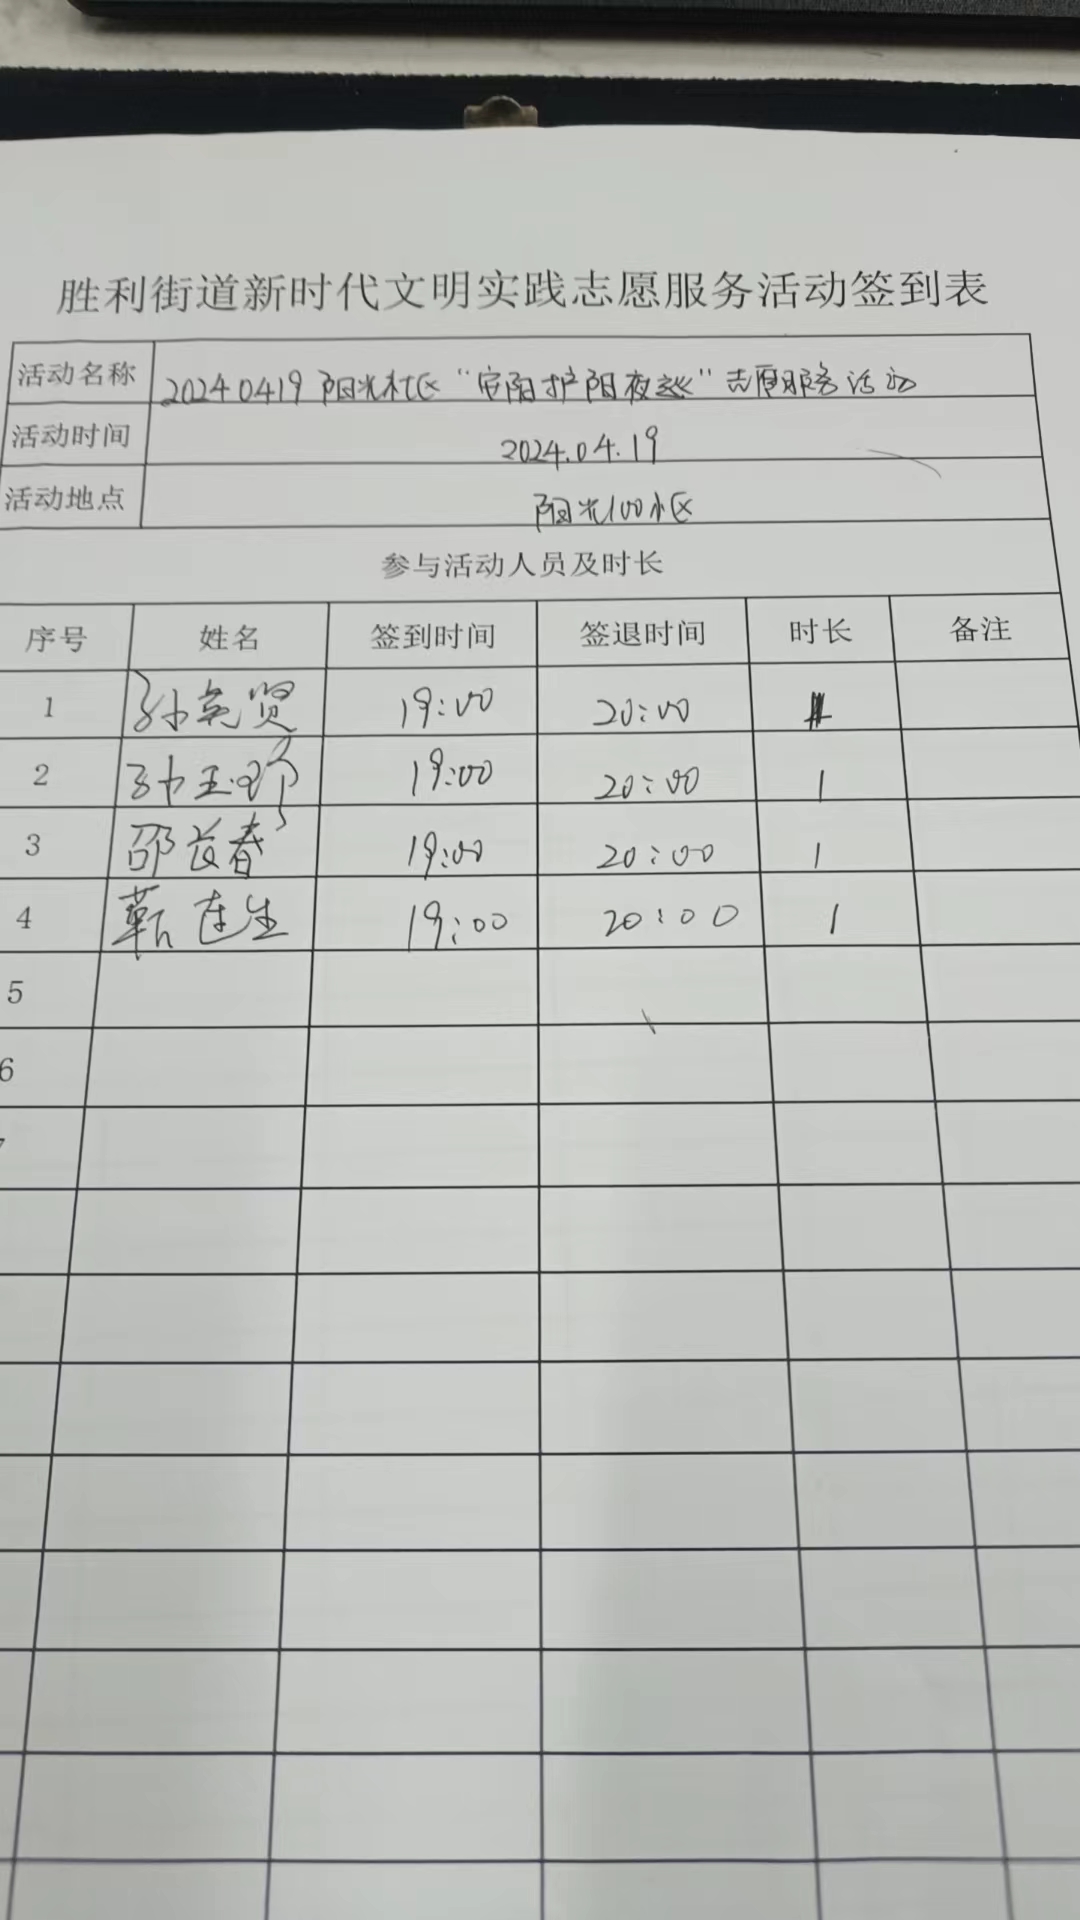 胜利街道新时代文明实践志愿服务活动签到表
活动名称 20240419 阳光社区“安阳护阳夜巡”志愿服务活动
活动时间 2024.04.19
活动地点 阳光100小区
参与活动人员及时长
序号 姓名 签到时间 签退时间 时长 备注
1 孙英贤 19:00 20:00
2 孙玉 19:00 20:00 1
3 邵长春 19:00 20:00 1
4 靳连生 19:00 20:00 1
5
6